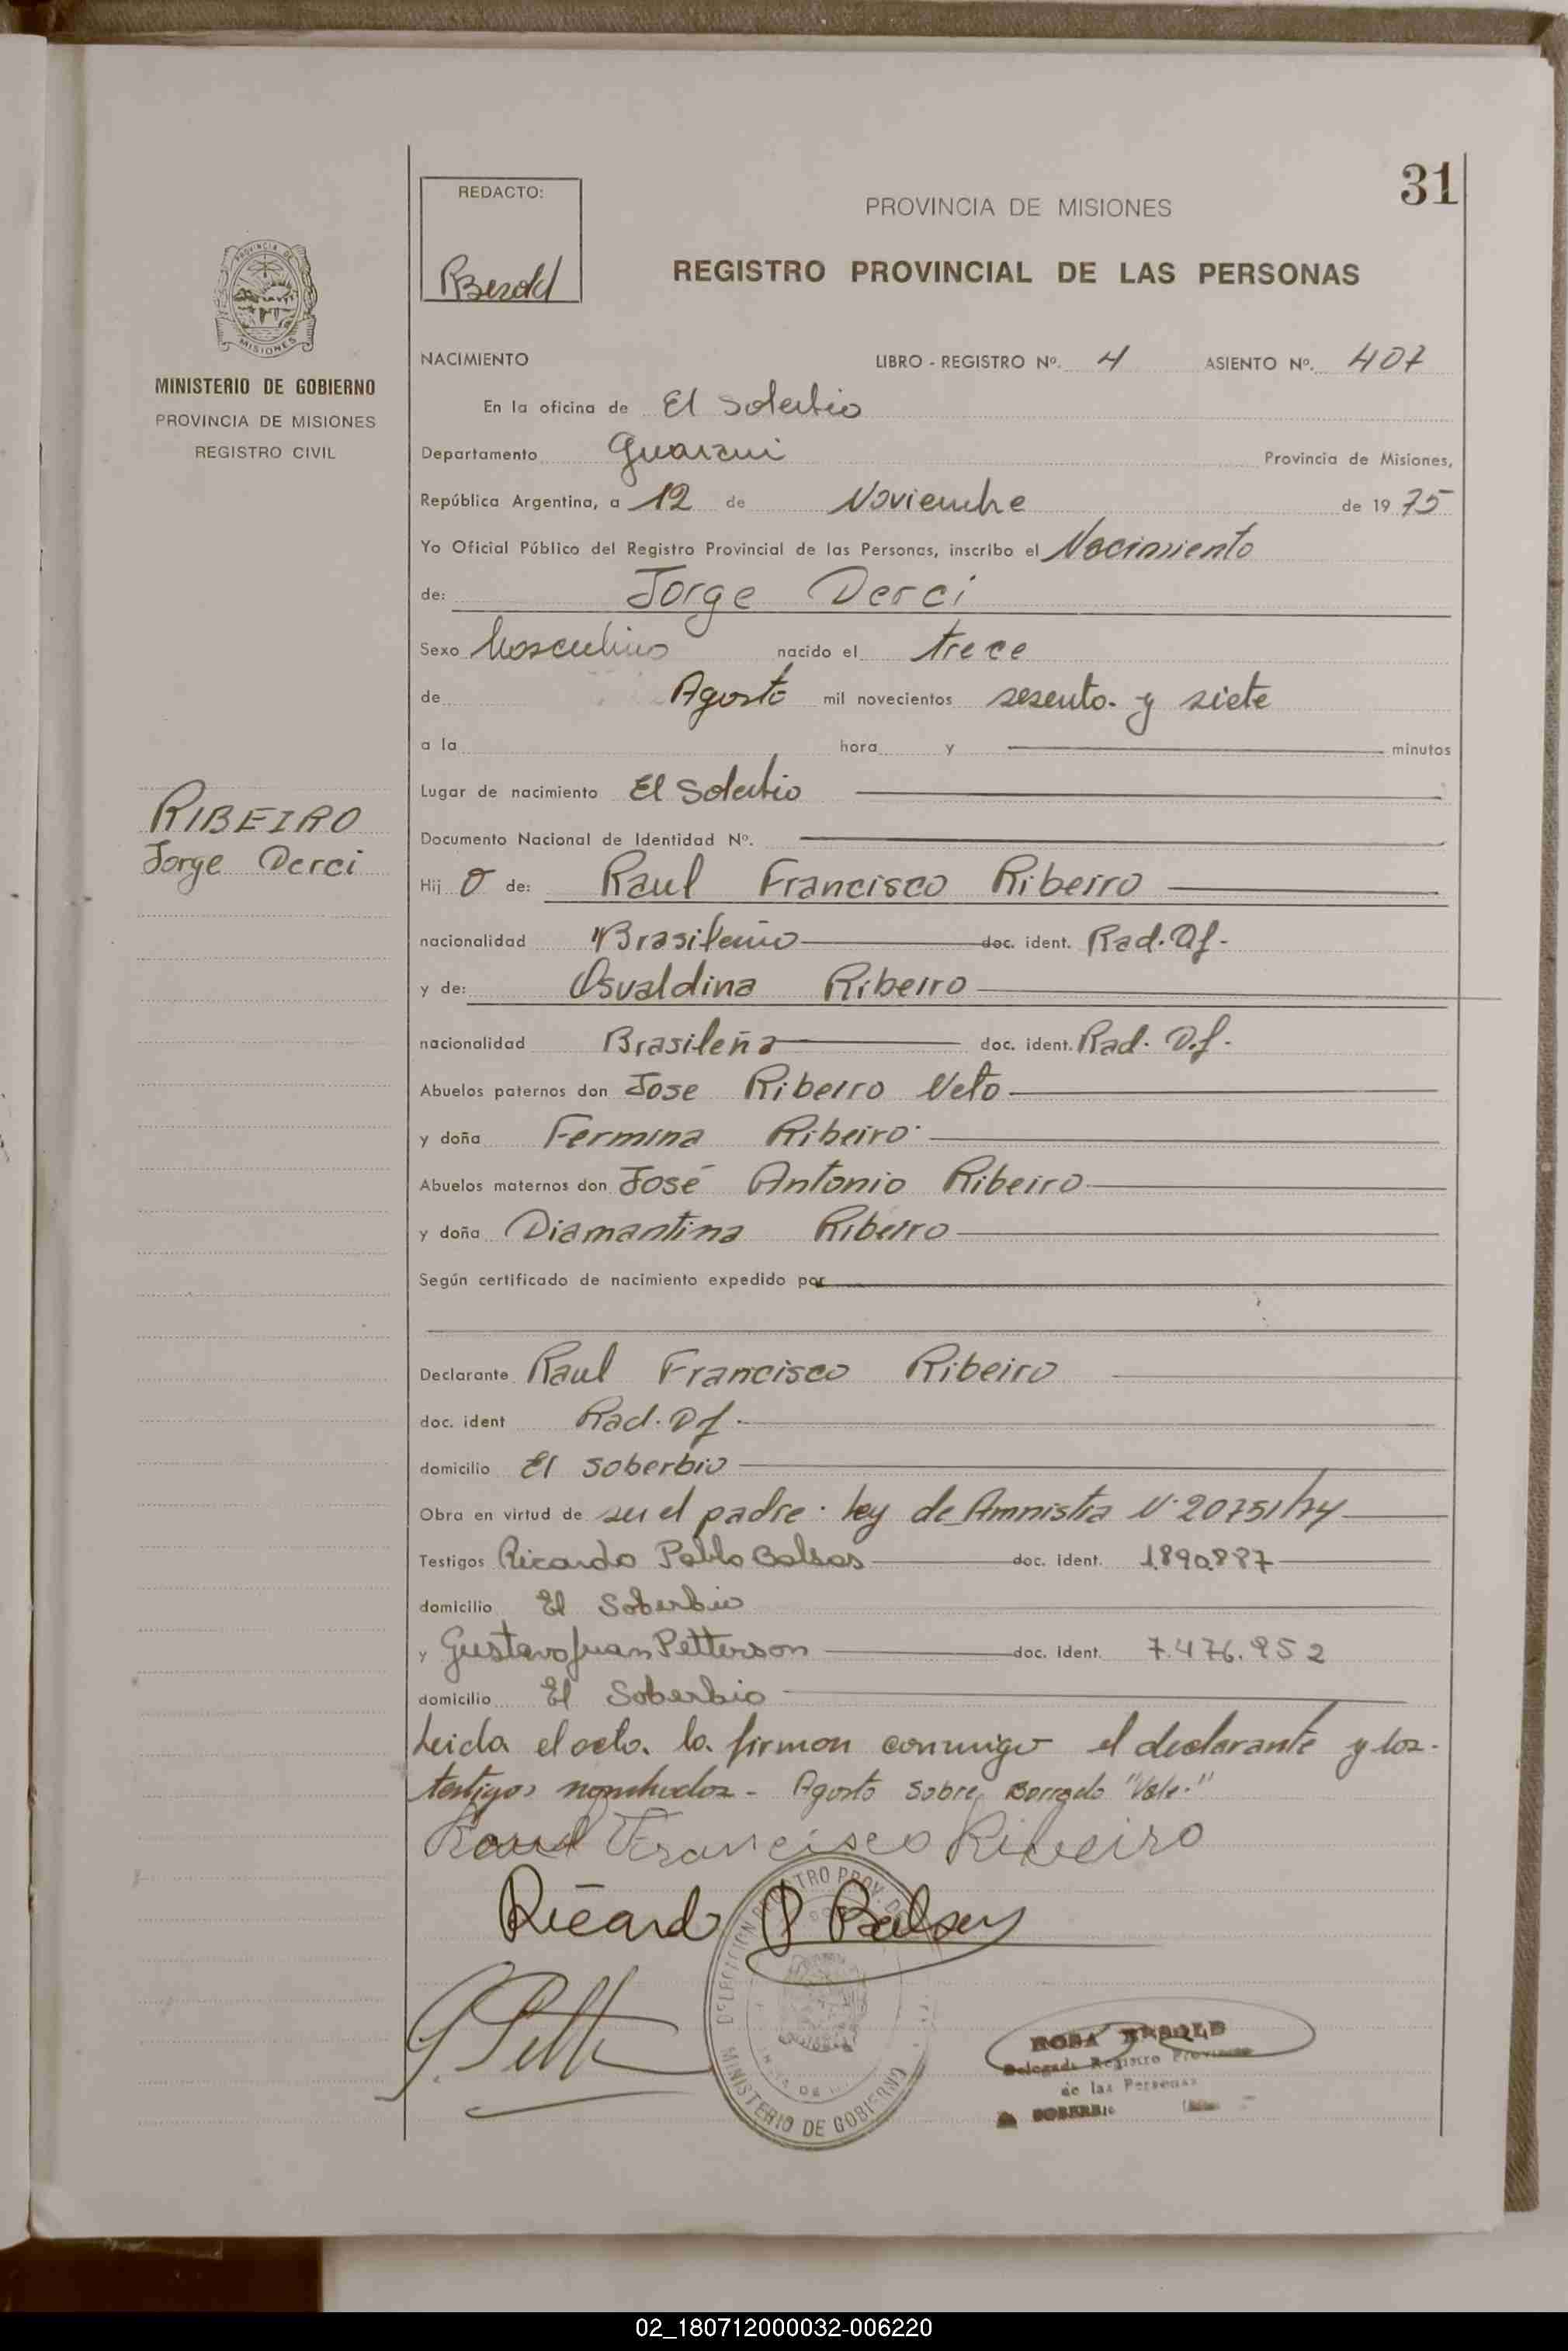 31
REDACTO:
RBesold
PROVINCIA DE MISIONES
REGISTRO PROVINCIAL DE LAS PERSONAS
PROVINCIA DE MISIONES
MINISTERIO DE GOBIERNO
PROVINCIA DE MISIONES
REGISTRO CIVIL
NACIMIENTO LIBRO - REGISTRO Nº. 4 ASIENTO Nº. 407
En la oficina de El Soberbio
Departamento Guarani Provincia de Misiones,
República Argentina, a 12 de Noviembre de 1975
Yo Oficial Público del Registro Provincial de las Personas, inscribo el Nacimiento
de: Jorge Derci
Sexo Masculino nacido el trece
de Agosto mil novecientos sesenta y siete
a la hora y minutos
Lugar de nacimiento El Soberbio
RIBEIRO
Jorge Derci
Documento Nacional de Identidad Nº.
Hijo de: Raul Francisco Ribeiro
nacionalidad Brasileño doc. ident. Rad. Df.
y de: Osvaldina Ribeiro
nacionalidad Brasileña doc. ident. Rad. D.f.
Abuelos paternos don Jose Ribeiro Neto
y doña Fermina Ribeiro
Abuelos maternos don José Antonio Ribeiro
y doña Diamantina Ribeiro
Según certificado de nacimiento expedido por
Declarante Raul Francisco Ribeiro
doc. ident Rad. Df.
domicilio El soberbio
Obra en virtud de ser el padre. ley de Amnistia Nº 20751/74
Testigos Ricardo Pablo Balsas doc. ident. 1.890.887
domicilio El Soberbio
y Gustavo Juan Petterson doc. ident. 7.476.952
domicilio El Soberbio
Leida el acta. la firman conmigo el declarante y los
testigos nombrados - Agosto Sobre Borrado "Vale."
Raul Francisco Ribeiro
Ricardo P Balsas
G Pett
DELEGACION REGISTRO PROV. DE
MINISTERIO DE GOBIERNO
ROSA BESOLD
Delegada Registro Provincial
de las Personas
SOBERBIO
02_180712000032-006220